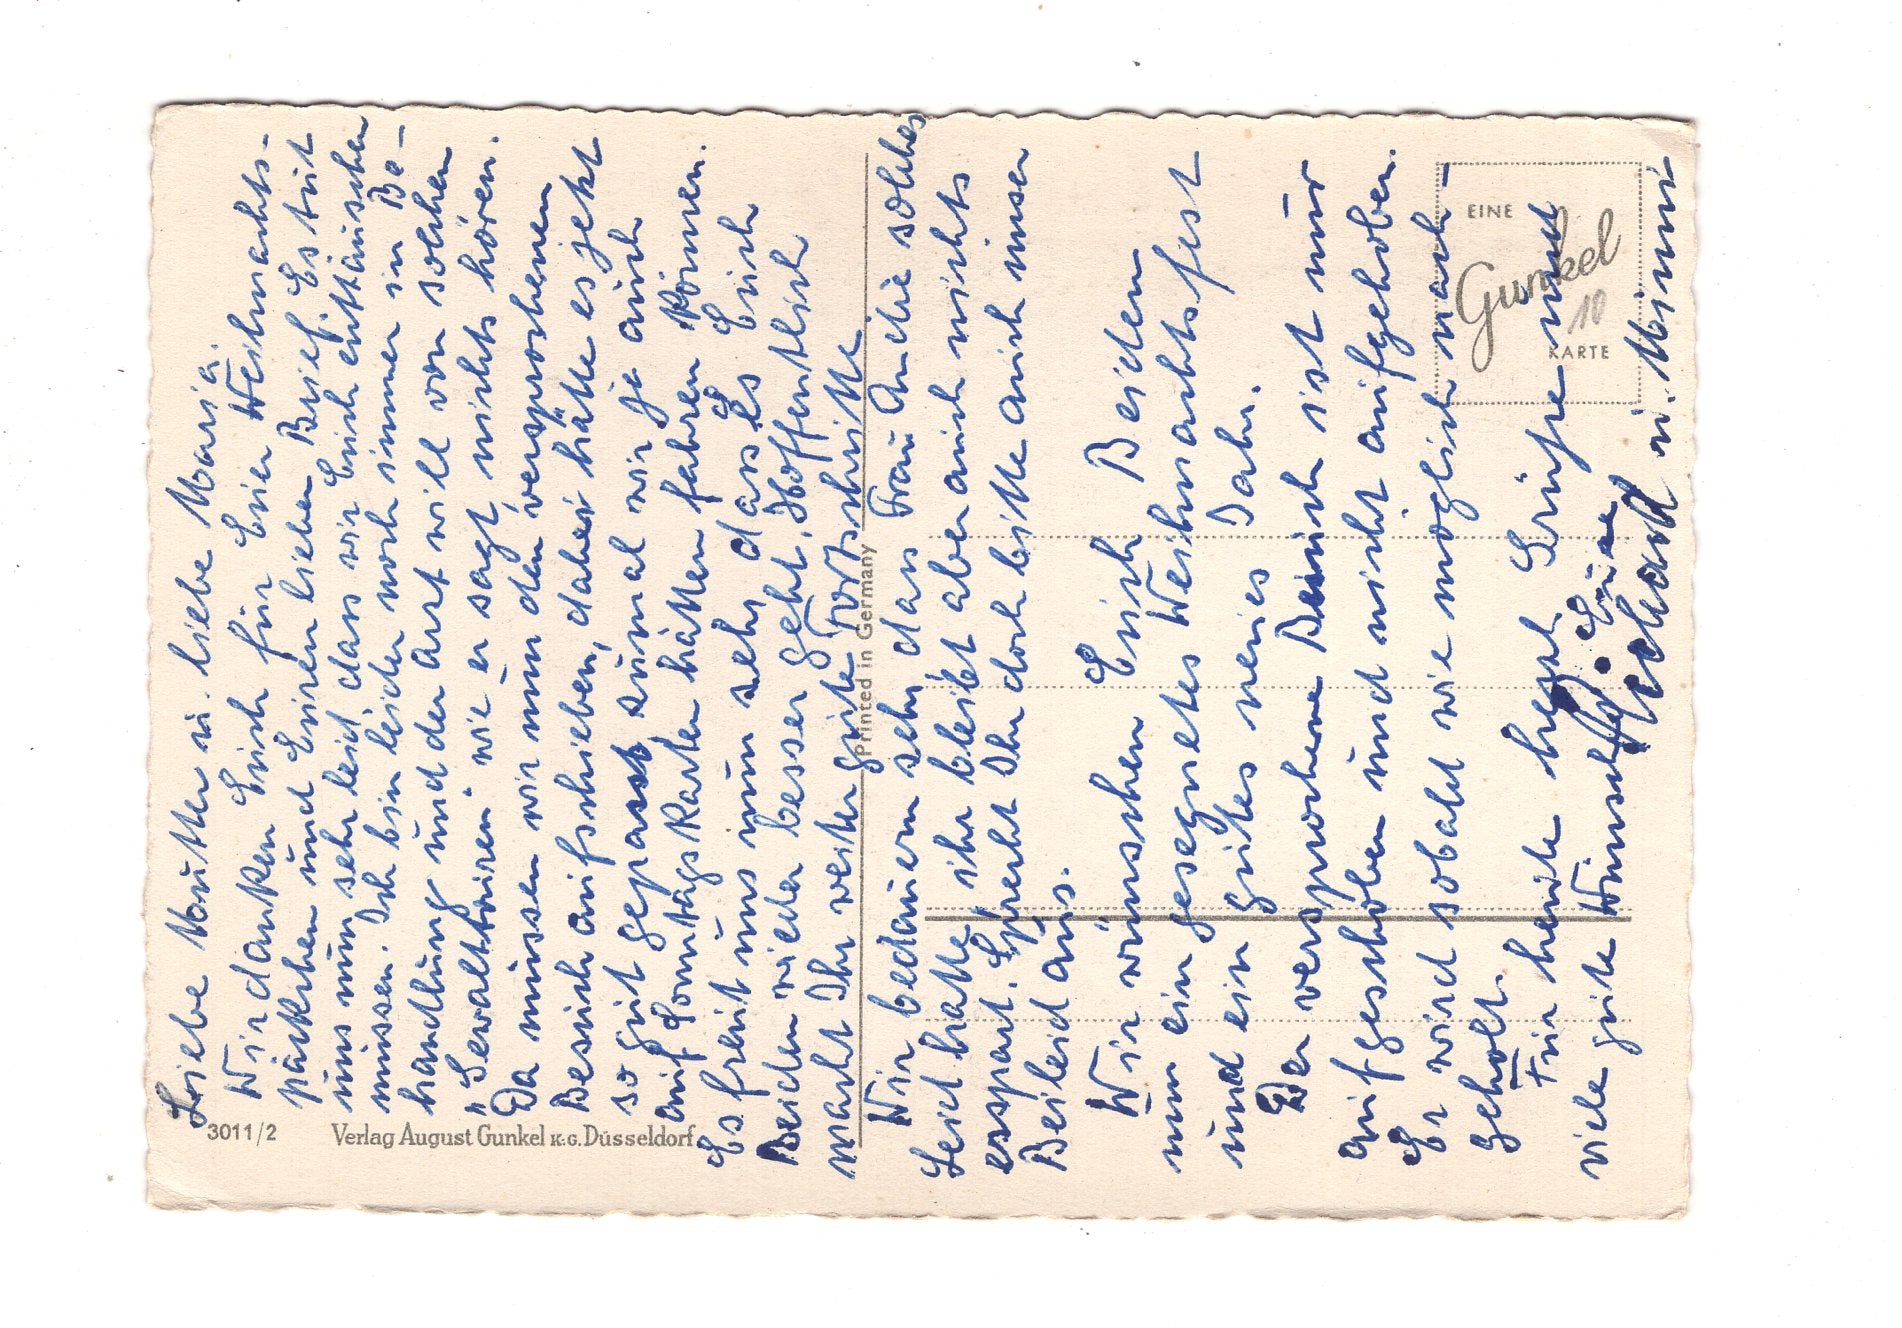 Liebe Mutter u. liebe Maria.
Wir danken Euch für Euer Weihnachts-
päckchen und Euren lieben Brief. Es tut
uns nun sehr leid dass wir Euch enttäuschen
müssen. Ich bin leider noch immer in Be-
handlung und der Arzt will von solchen
„ wie er sagt, nichts hören.
Da müssen wir nun den versprochenen
Besuch aufschieben, dabei hätte es jetzt
so gut gepasst, zumal wir ja auch
auf Sonntagskarte hätten fahren können.
Es freut uns nun sehr dass es Euch
Beiden wieder besser geht. Hoffentlich
macht Ihr weiter gute Fortschritte.
Wir bedauern sehr dass Frau solches
Leid hatte, ihr bleibt aber auch nichts
erspart. Sprecht Ihr doch bitte auch unser
Beileid aus.
Wir wünschen Euch Beiden
nun ein gesegnetes Weihnachtsfest
und ein gutes neues Jahr.
Der versprochene Besuch ist nur
aufgeschoben und nicht aufgehoben.
Er wird sobald wie möglich nach-
geholt.
Für heute herzl. Grüße und
viele gute Wünsche
Eure
u. Mimi
3011/2
Verlag August Gunkel K.G. Düsseldorf
Printed in Germany
EINE
Gunkel
KARTE
10